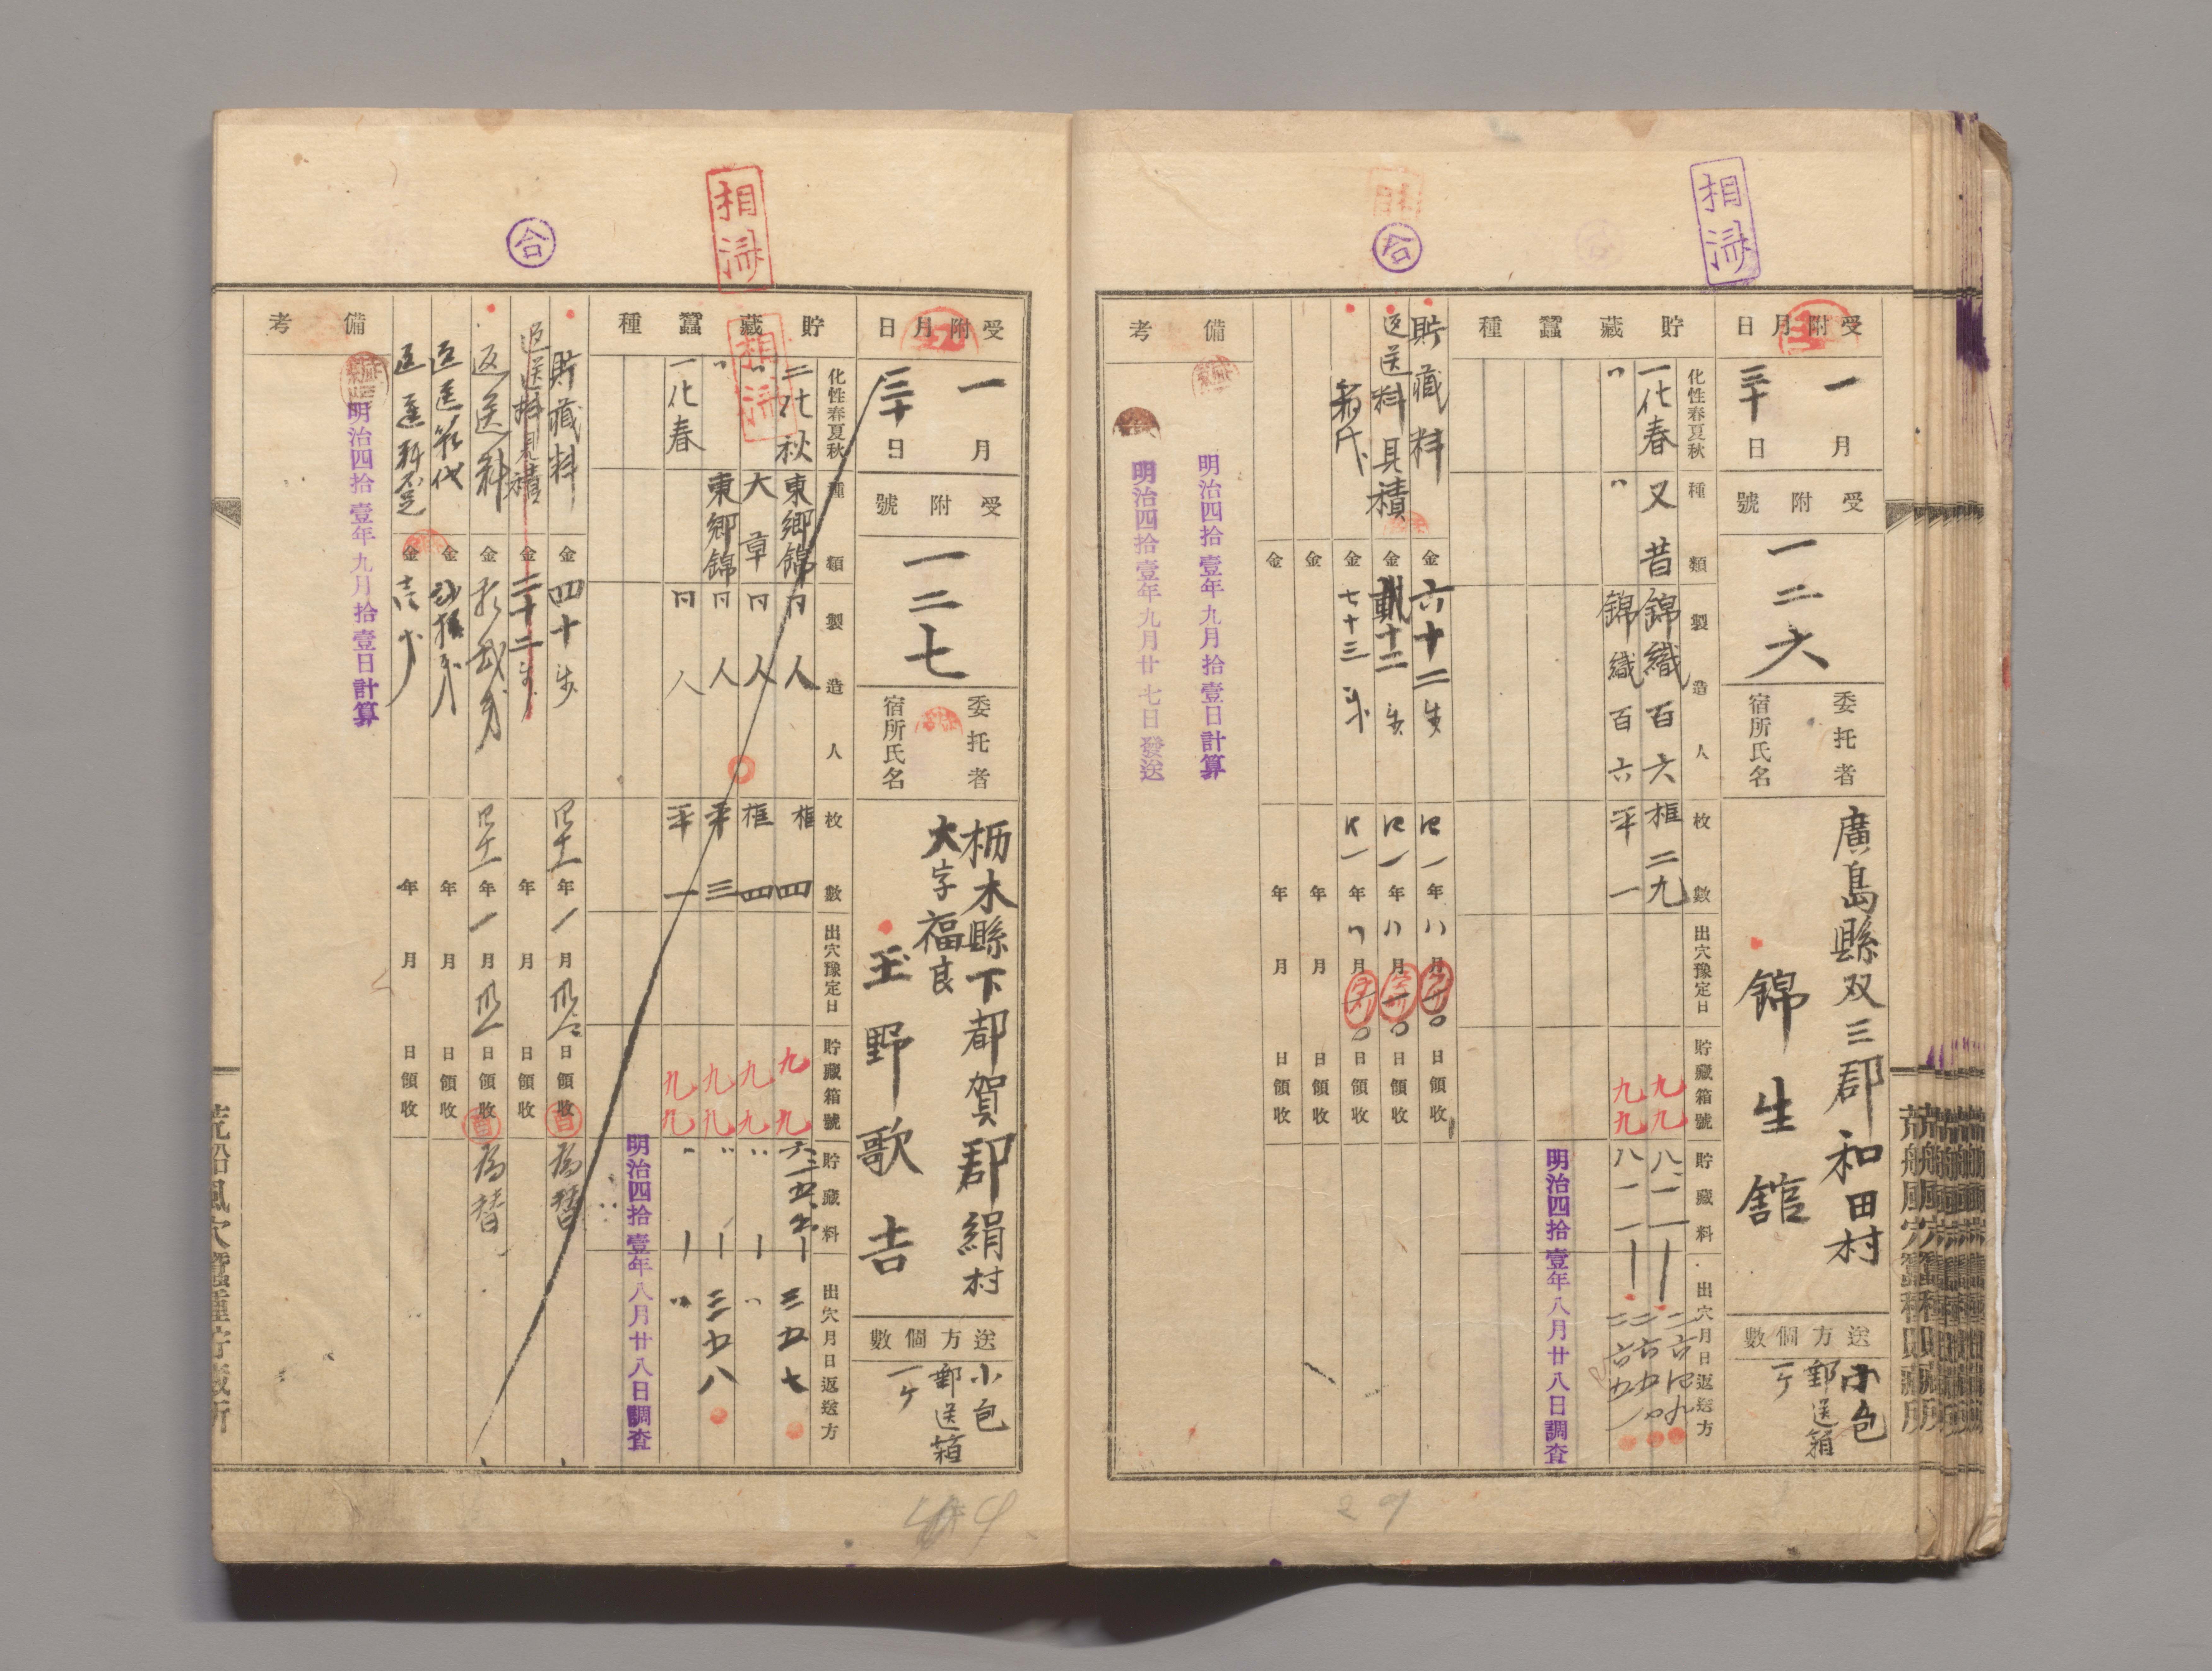 相済
合
受附月日
一月
三十日
受附號
一二六
委托者
宿所氏名
廣島縣双三郡和田村
錦生舘
送方個數
小包
郵送箱
一ケ
貯藏蠶種
化性春夏秋
種類
製造人
枚數
出穴豫定日
貯藏箱號
貯藏料
出穴月日返送方
一化春
又昔
錦織百六
框二九
九九
八、一一
二六四九
〃
〃
錦織百六
平一
九九
八一一
二六五〇
二六五一
明治四拾壹年八月廿八日調査
貯藏料
金六十二戋
四一年八月一〇日領收
返送料見積
金貳十二戋
四一年八月一〇日領收
金七十三戋
年月日領收
金
年月日領收
金
年月日領收
備考
明治四拾壹年九月拾壹日計算
明治四拾壹年九月廿七日發送
29
荒船風穴蠶種貯藏所
相済
合
受附月日
一月
三十日
受附號
一二七
委托者
宿所氏名
栃木縣下都賀郡絹村
大字福良
玉野歌吉
送方個數
小包
郵送箱
一ケ
貯藏蠶種
相済
化性春夏秋
種類
製造人
枚數
出穴豫定日
貯藏箱號
貯藏料
出穴月日返送方
二化秋
東郷錦
仝人
框四
九九
三五七
〃
大草
仝人
框四
九九
〃
〃
東郷錦
仝人
平三
九九
〃
三五八
一化春
仝人
平一
九九
〃
〃
明治四拾壹年八月廿八日調査
貯藏料
金四十戋
四十一年一月
日領收
為替
返送料見積
金二十二戋
年月日領收
返送料
金
四十一年一月
日領收
為替
返送箱代
金
年月日領收
返送料不足
金
年月日領收
備考
明治四拾壹年九月拾壹日計算
荒船風穴蠶種貯藏所